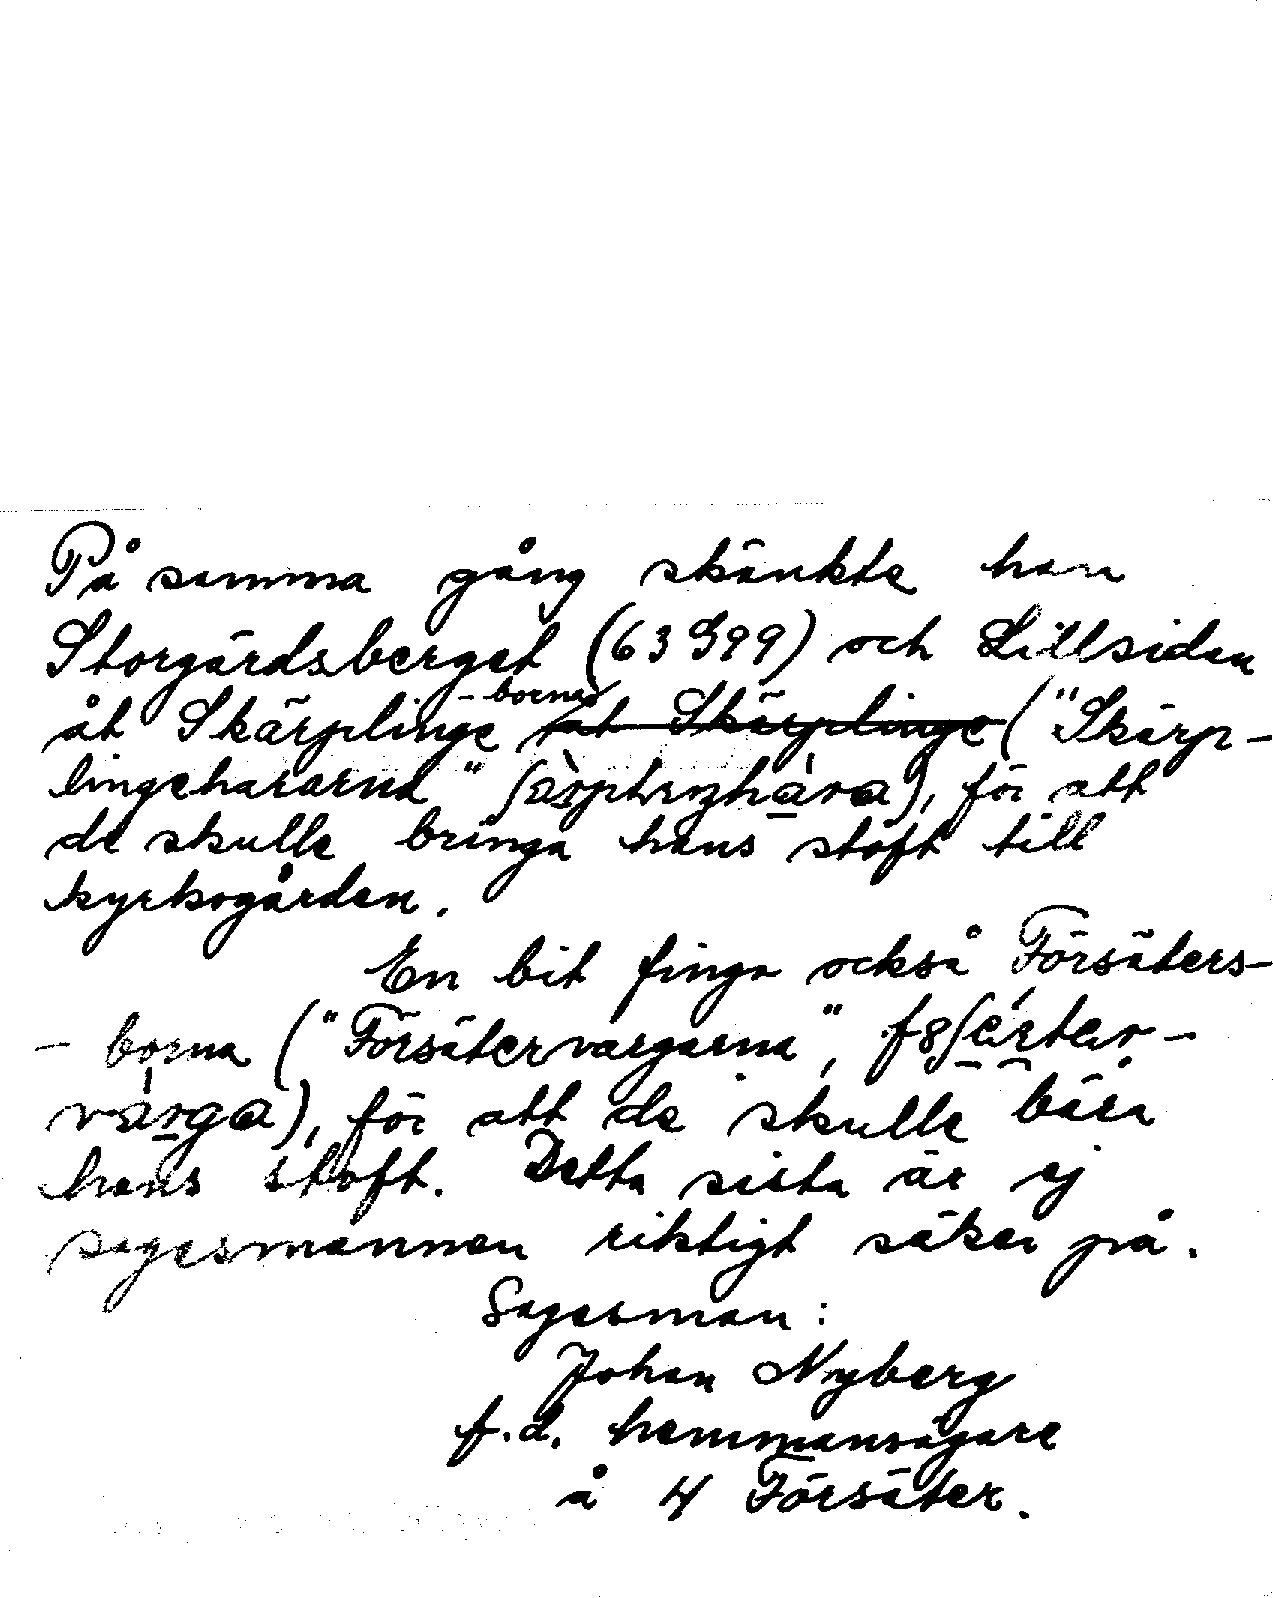 På samma gång skänkte han
Storgårdsberget (63 S99) och Lillsidan
åt Skärplinge-borna åt Skärplinge ("Skärp-
lingehararna" ), för att
de skulle bringa hans stoft till
kyrkogården.
En bit finga också Försäters-
- borna ("Försätervargarna",
värga), för att de skulle bära
hans stoft. Detta sista är ej
sagesmannen riktigt säker på.
Sagesman:
Johan Nyberg
f.d. hemmansägare
å 4 Försäter.